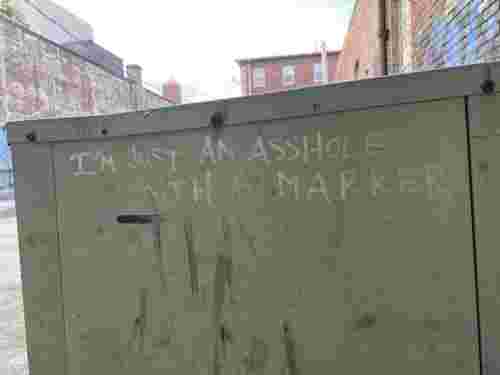 I'M JUST AN ASSHOLE
WITH A MARKER